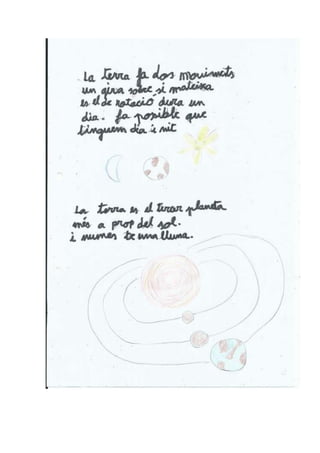 La terra fa dos moviments
un gira sobre si mateixa
es el de rotacio dura un
dia. fa posible que
tinguem dia i nit
La terra es el tercer planeta
més a prop del sol.
i numes te una lluna.